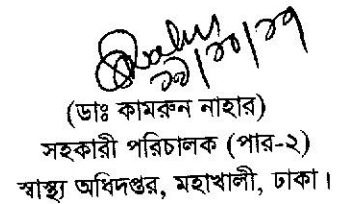 ১৯/১০/১৭
(ডাঃ কামরুন নাহার)
সহকারী পরিচালক (পার-২)
স্বাস্থ্য অধিদপ্তর, মহাখালী, ঢাকা।